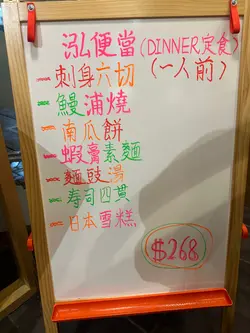 泓便當(DINNER定食)
(一人前)
一刺身六切
一鰻浦燒
一南瓜餅
一蝦膏素麵
一麵豉湯
一寿司四貫
一日本雪糕
$268